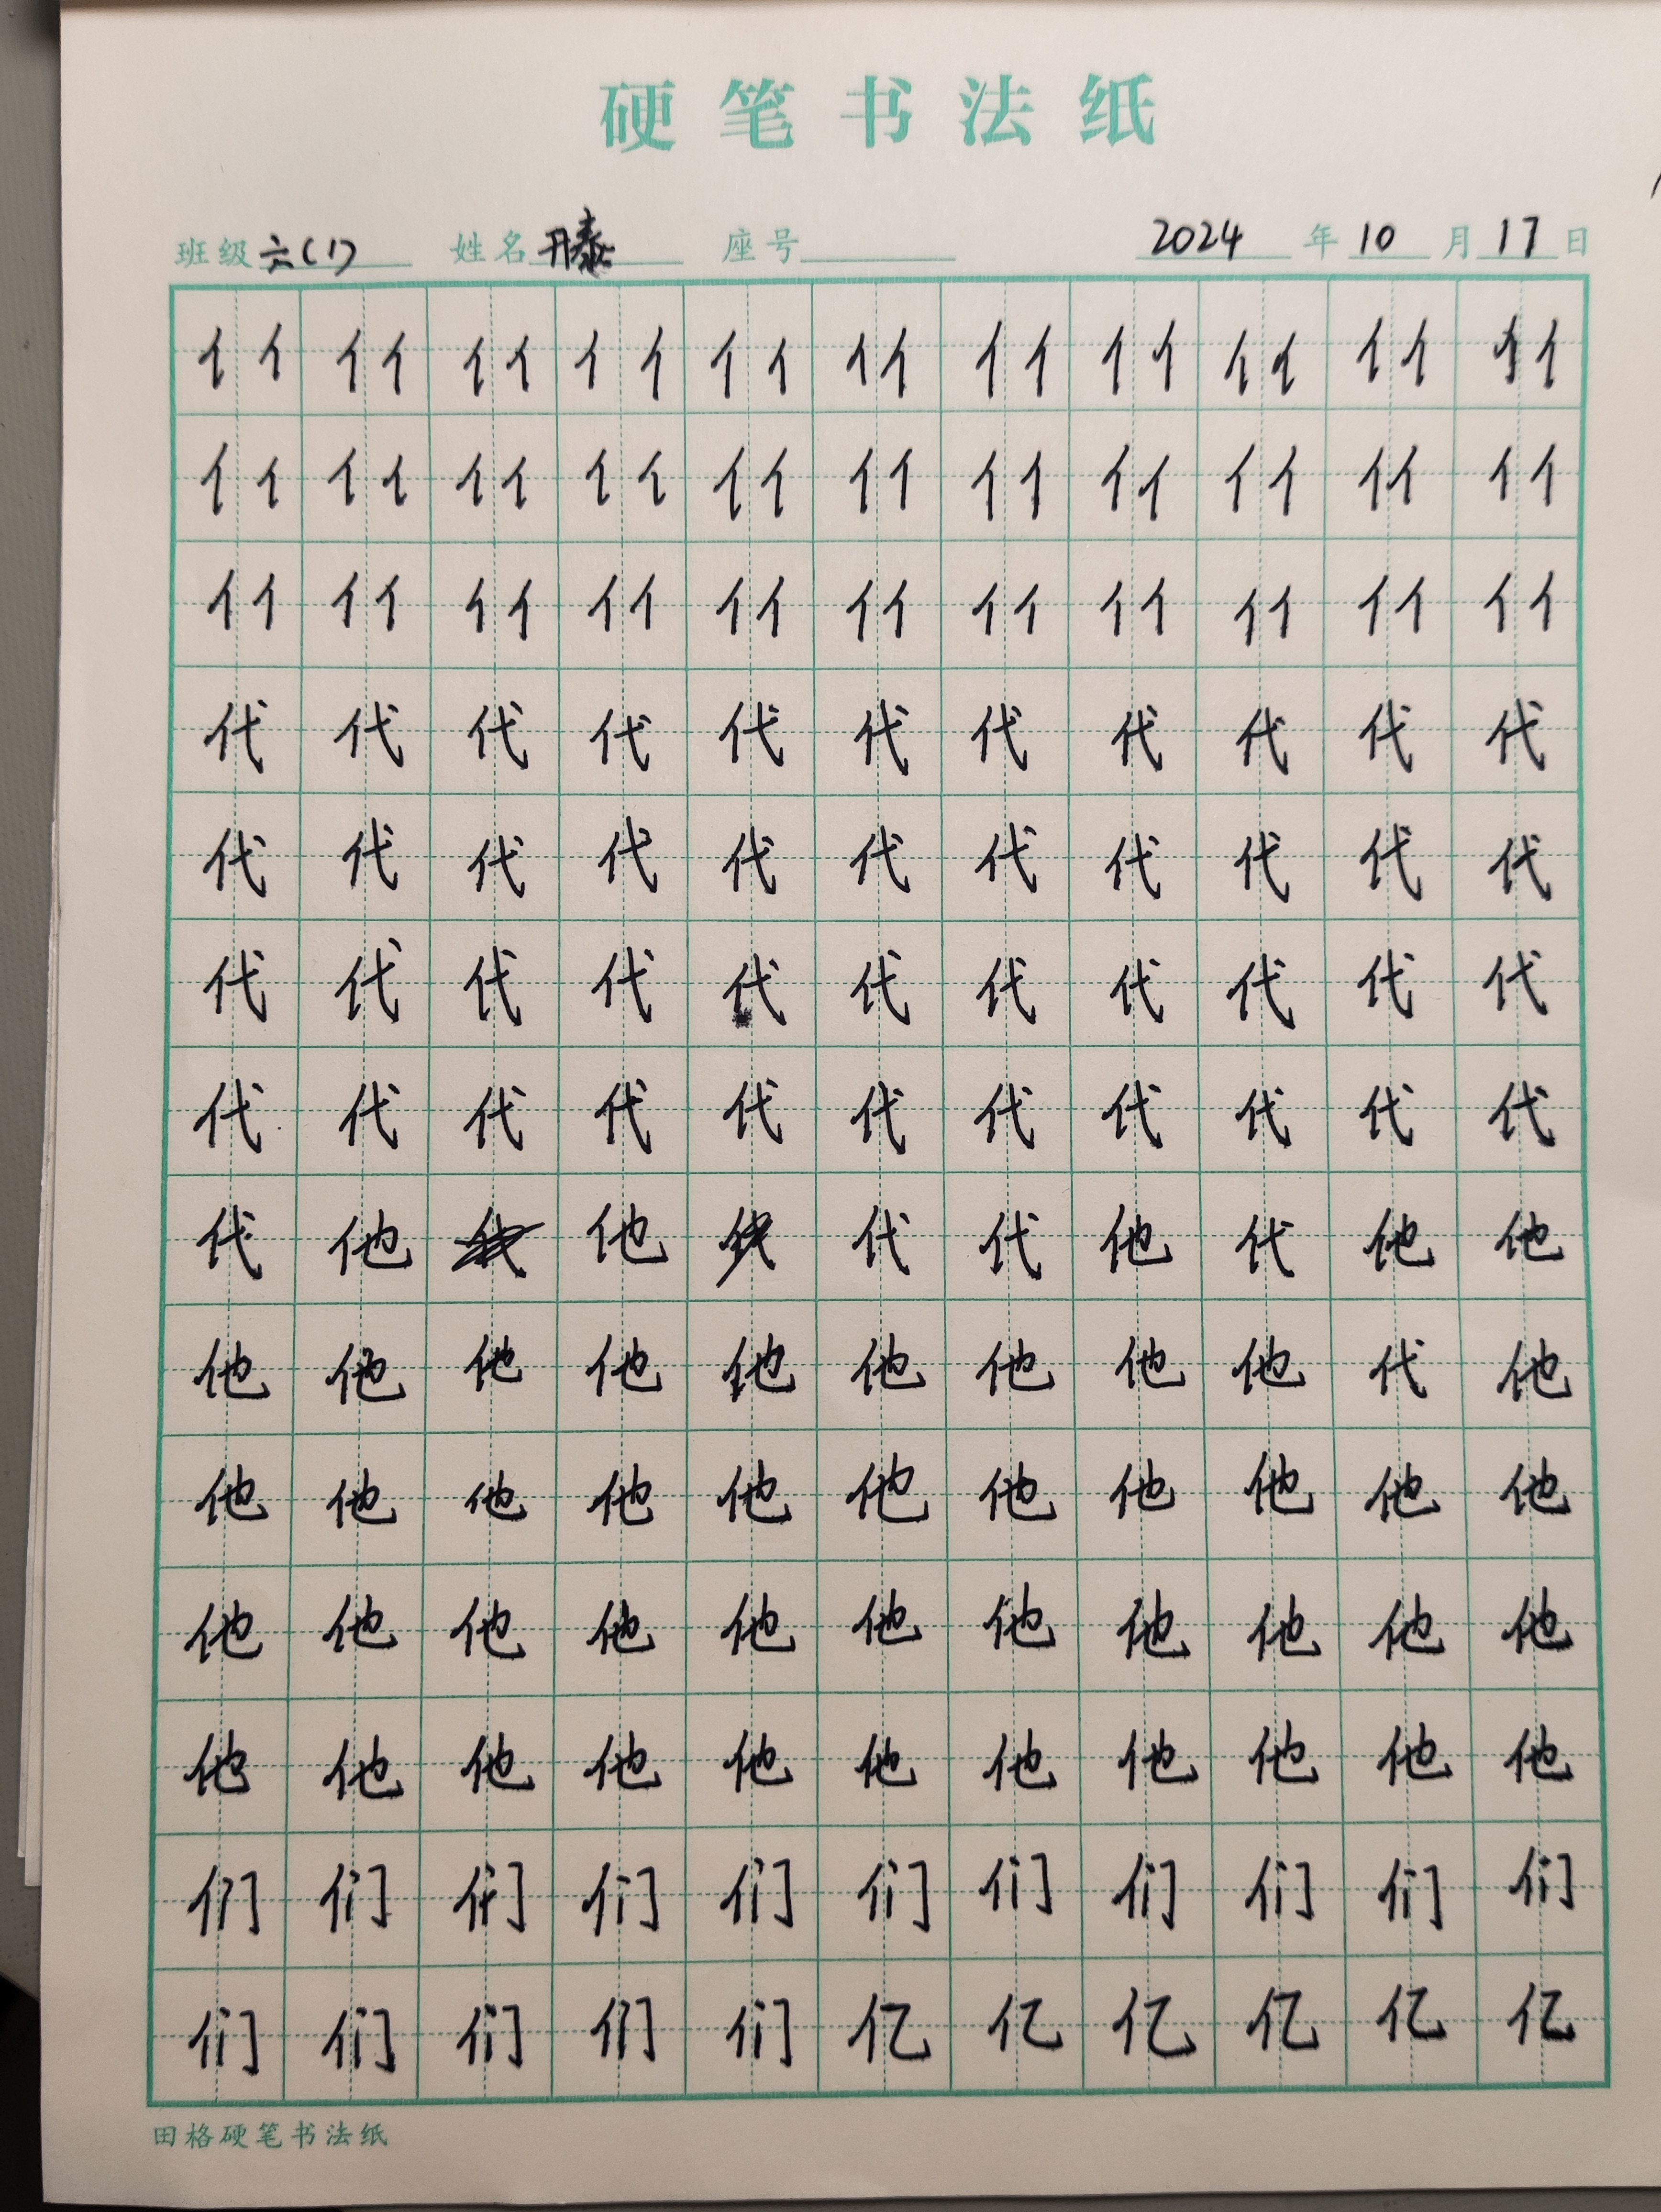 硬笔书法纸
班级 六(1) 姓名 座号 2024 年 10 月 17 日
亻亻亻亻亻亻亻亻亻亻亻亻亻亻亻亻亻亻亻亻亻亻
亻亻亻亻亻亻亻亻亻亻亻亻亻亻亻亻亻亻亻亻亻亻
亻亻亻亻亻亻亻亻亻亻亻亻亻亻亻亻亻亻亻亻亻亻
代代代代代代代代代代代
代代代代代代代代代代代
代代代代代代代代代代代
代代代代代代代代代代代
代他他代代他代他他
他他他他他他他他他代他
他他他他他他他他他他他
他他他他他他他他他他他
他他他他他他他他他他他
们们们们们们们们们们们
们们们们们亿亿亿亿亿亿
田格硬笔书法纸